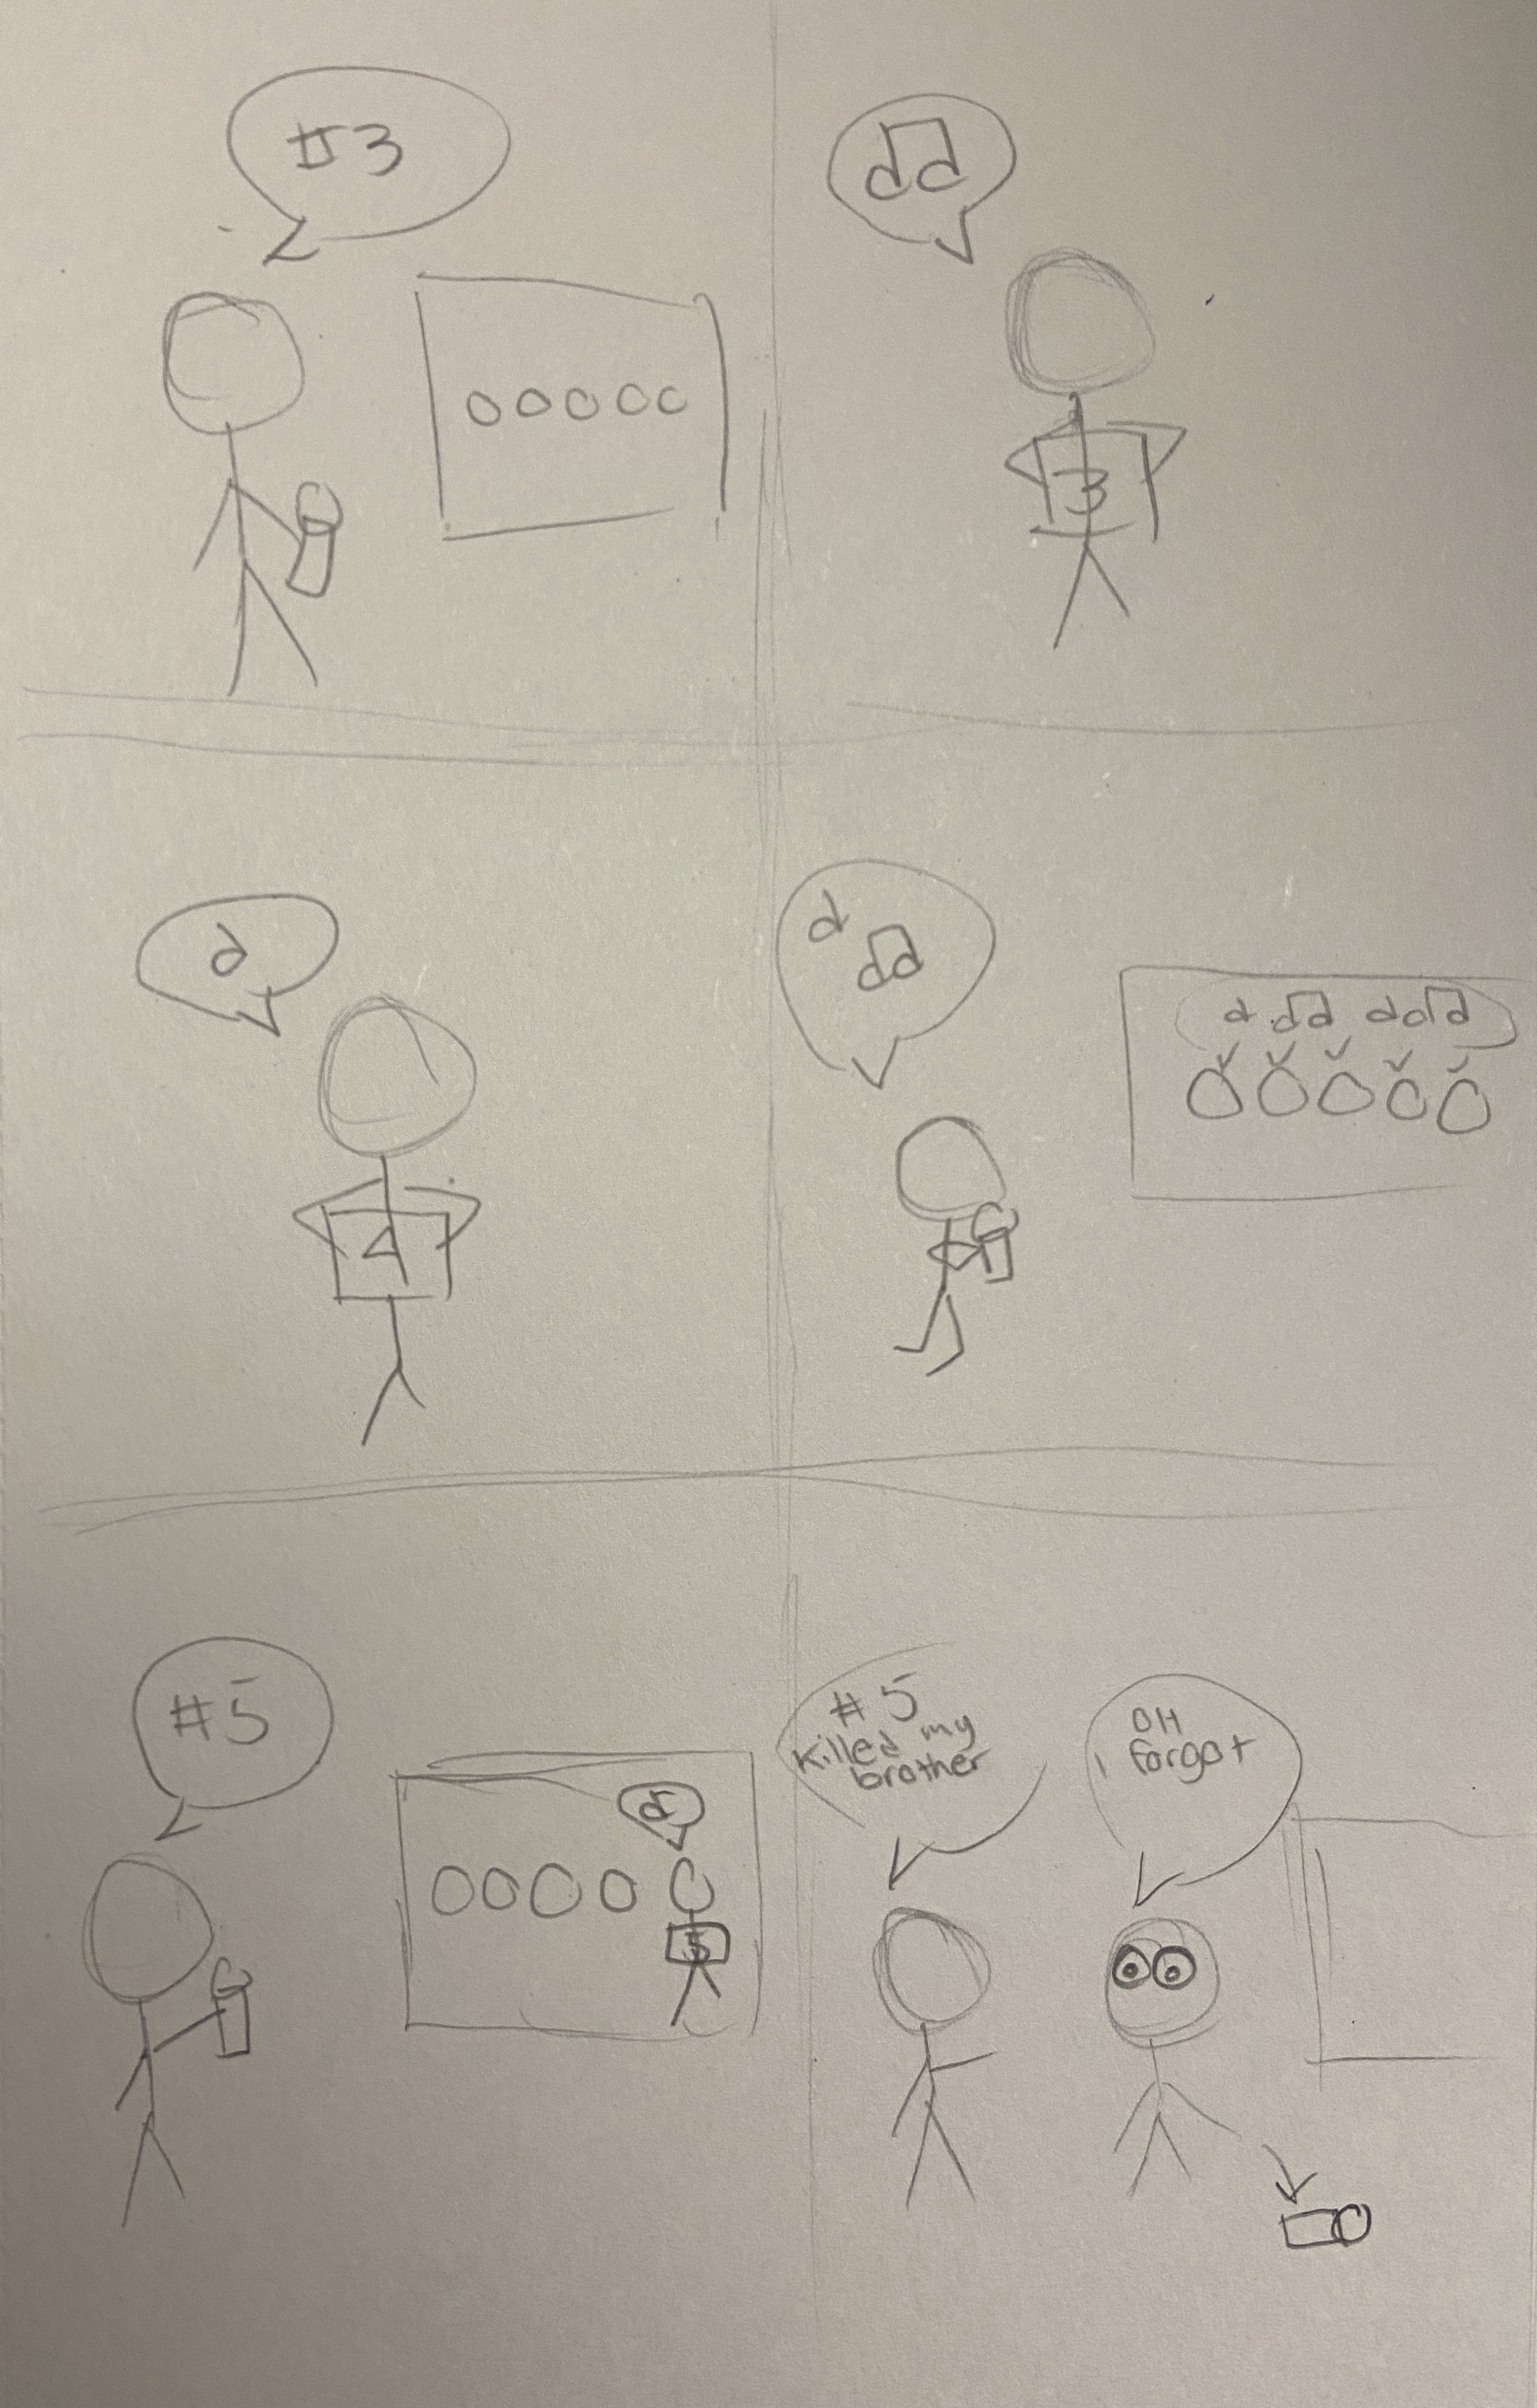 #3
3
4
#5
5
#5
killed my
brother
OH
I forgot